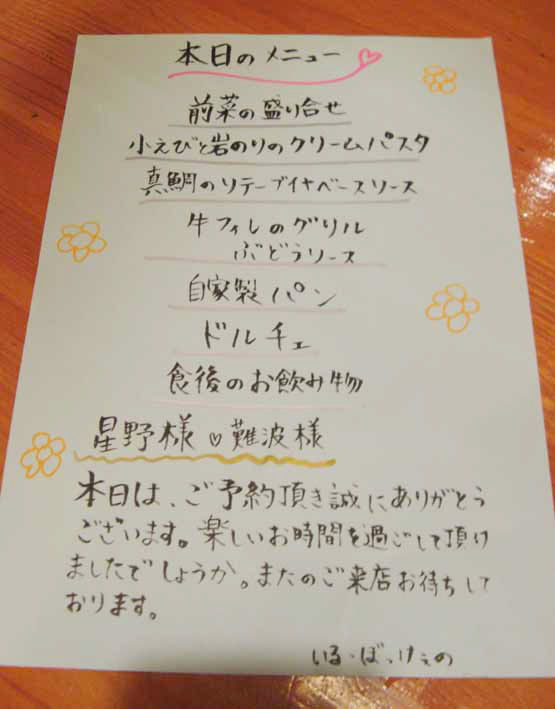 本日のメニュー
前菜の盛り合せ
小えびと岩のりのクリームパスタ
真鯛のソテーブイヤベースソース
牛フィレのグリル
ぶどうソース
自家製パン
ドルチェ
食後のお飲み物
星野様♡難波様
本日は、ご予約頂き誠にありがとう
ございます。楽しいお時間を過ごして頂け
ましたでしょうか。またのご来店お待ちして
おります。
いる・ぼっけぇの